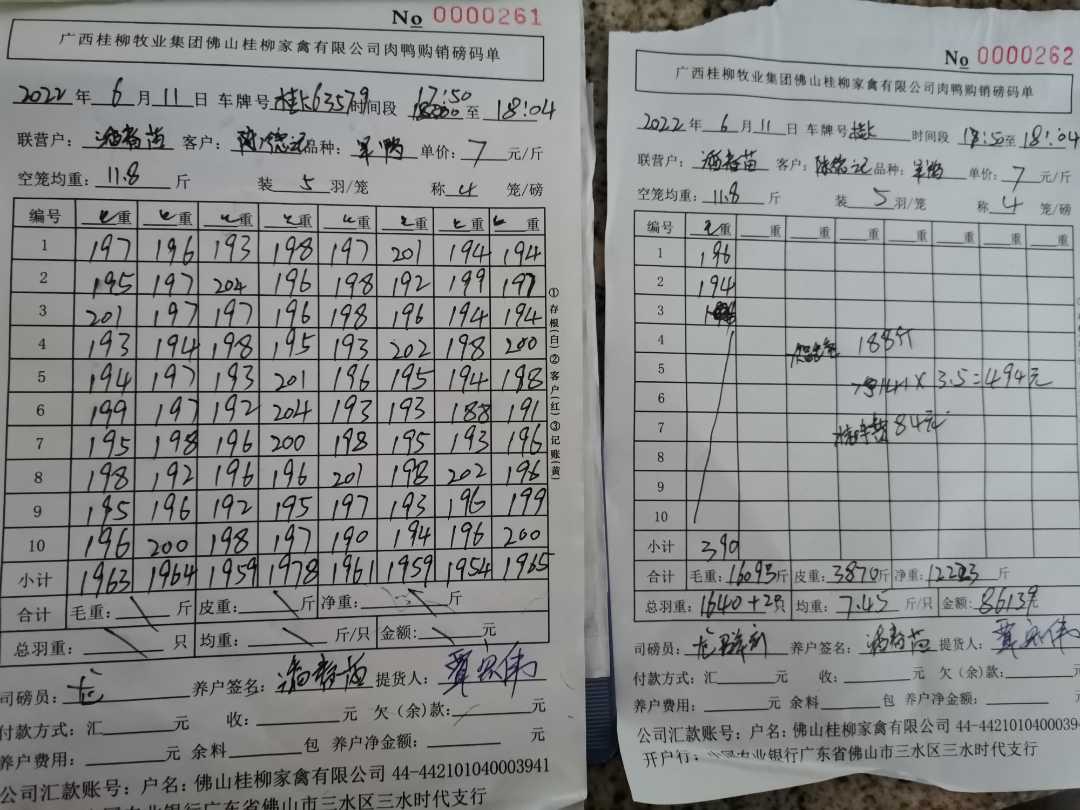 No 0000261
广西桂柳牧业集团佛山桂柳家禽有限公司肉鸭购销磅码单
2022 年 6 月 11 日 车牌号 桂K63579 时间段 17:50 至 18:04
联营户: 客户: 品种: 单价: 7 元/斤
空笼均重: 11.8 斤 装 5 羽/笼 称 4 笼/磅
编号 毛重 毛重 毛重 毛重 毛重 毛重 毛重 毛重
1 197 196 193 198 197 201 194 194
2 195 197 204 196 198 192 199 197
3 201 197 197 196 198 196 194 194
4 193 194 198 195 193 202 198 200
5 194 197 193 201 196 195 194 198
6 199 197 192 204 193 193 188 191
7 195 198 196 200 198 195 193 196
8 198 192 196 196 201 198 202 196
9 195 196 192 195 197 193 196 199
10 196 200 198 197 190 194 196 200
小计 1963 1964 1959 1978 1961 1959 1954 1965
合计 毛重: 斤 皮重: 斤 净重: 斤
总羽重: 只 均重: 斤/只 金额: 元
司磅员: 龙 养户签名: 提货人:
付款方式: 汇 元 收: 元 欠(余)款:
养户费用: 元 余料 包 养户净金额: 元
公司汇款账号: 户名: 佛山桂柳家禽有限公司 44-442101040003941
农业银行广东省佛山市三水区三水时代支行
①存根(白)②客户(红)③记账(黄)
No 0000262
广西桂柳牧业集团佛山桂柳家禽有限公司肉鸭购销磅码单
2022 年 6 月 11 日 车牌号 桂K 时间段 17:50 至 18:04
联营户: 客户: 品种: 单价: 7 元/斤
空笼均重: 11.8 斤 装 5 羽/笼 称 4 笼/磅
编号 毛重 重 重 重 重 重 重 重
1 196
2 194
3
4 188斤
5 × 3.5=494元
6
7 84元
8
9
10
小计 390
合计 毛重: 16093斤 皮重: 3870斤 净重: 12223 斤
总羽重: 1640+2只 均重: 7.45 斤/只 金额: 86139元
司磅员: 养户签名: 提货人:
付款方式: 汇 元 收: 元 欠(余)款: 元
养户费用: 元 余料 包 养户净金额: 元
公司汇款账号: 户名: 佛山桂柳家禽有限公司 44-4421010400039
开户行: 农业银行广东省佛山市三水区三水时代支行